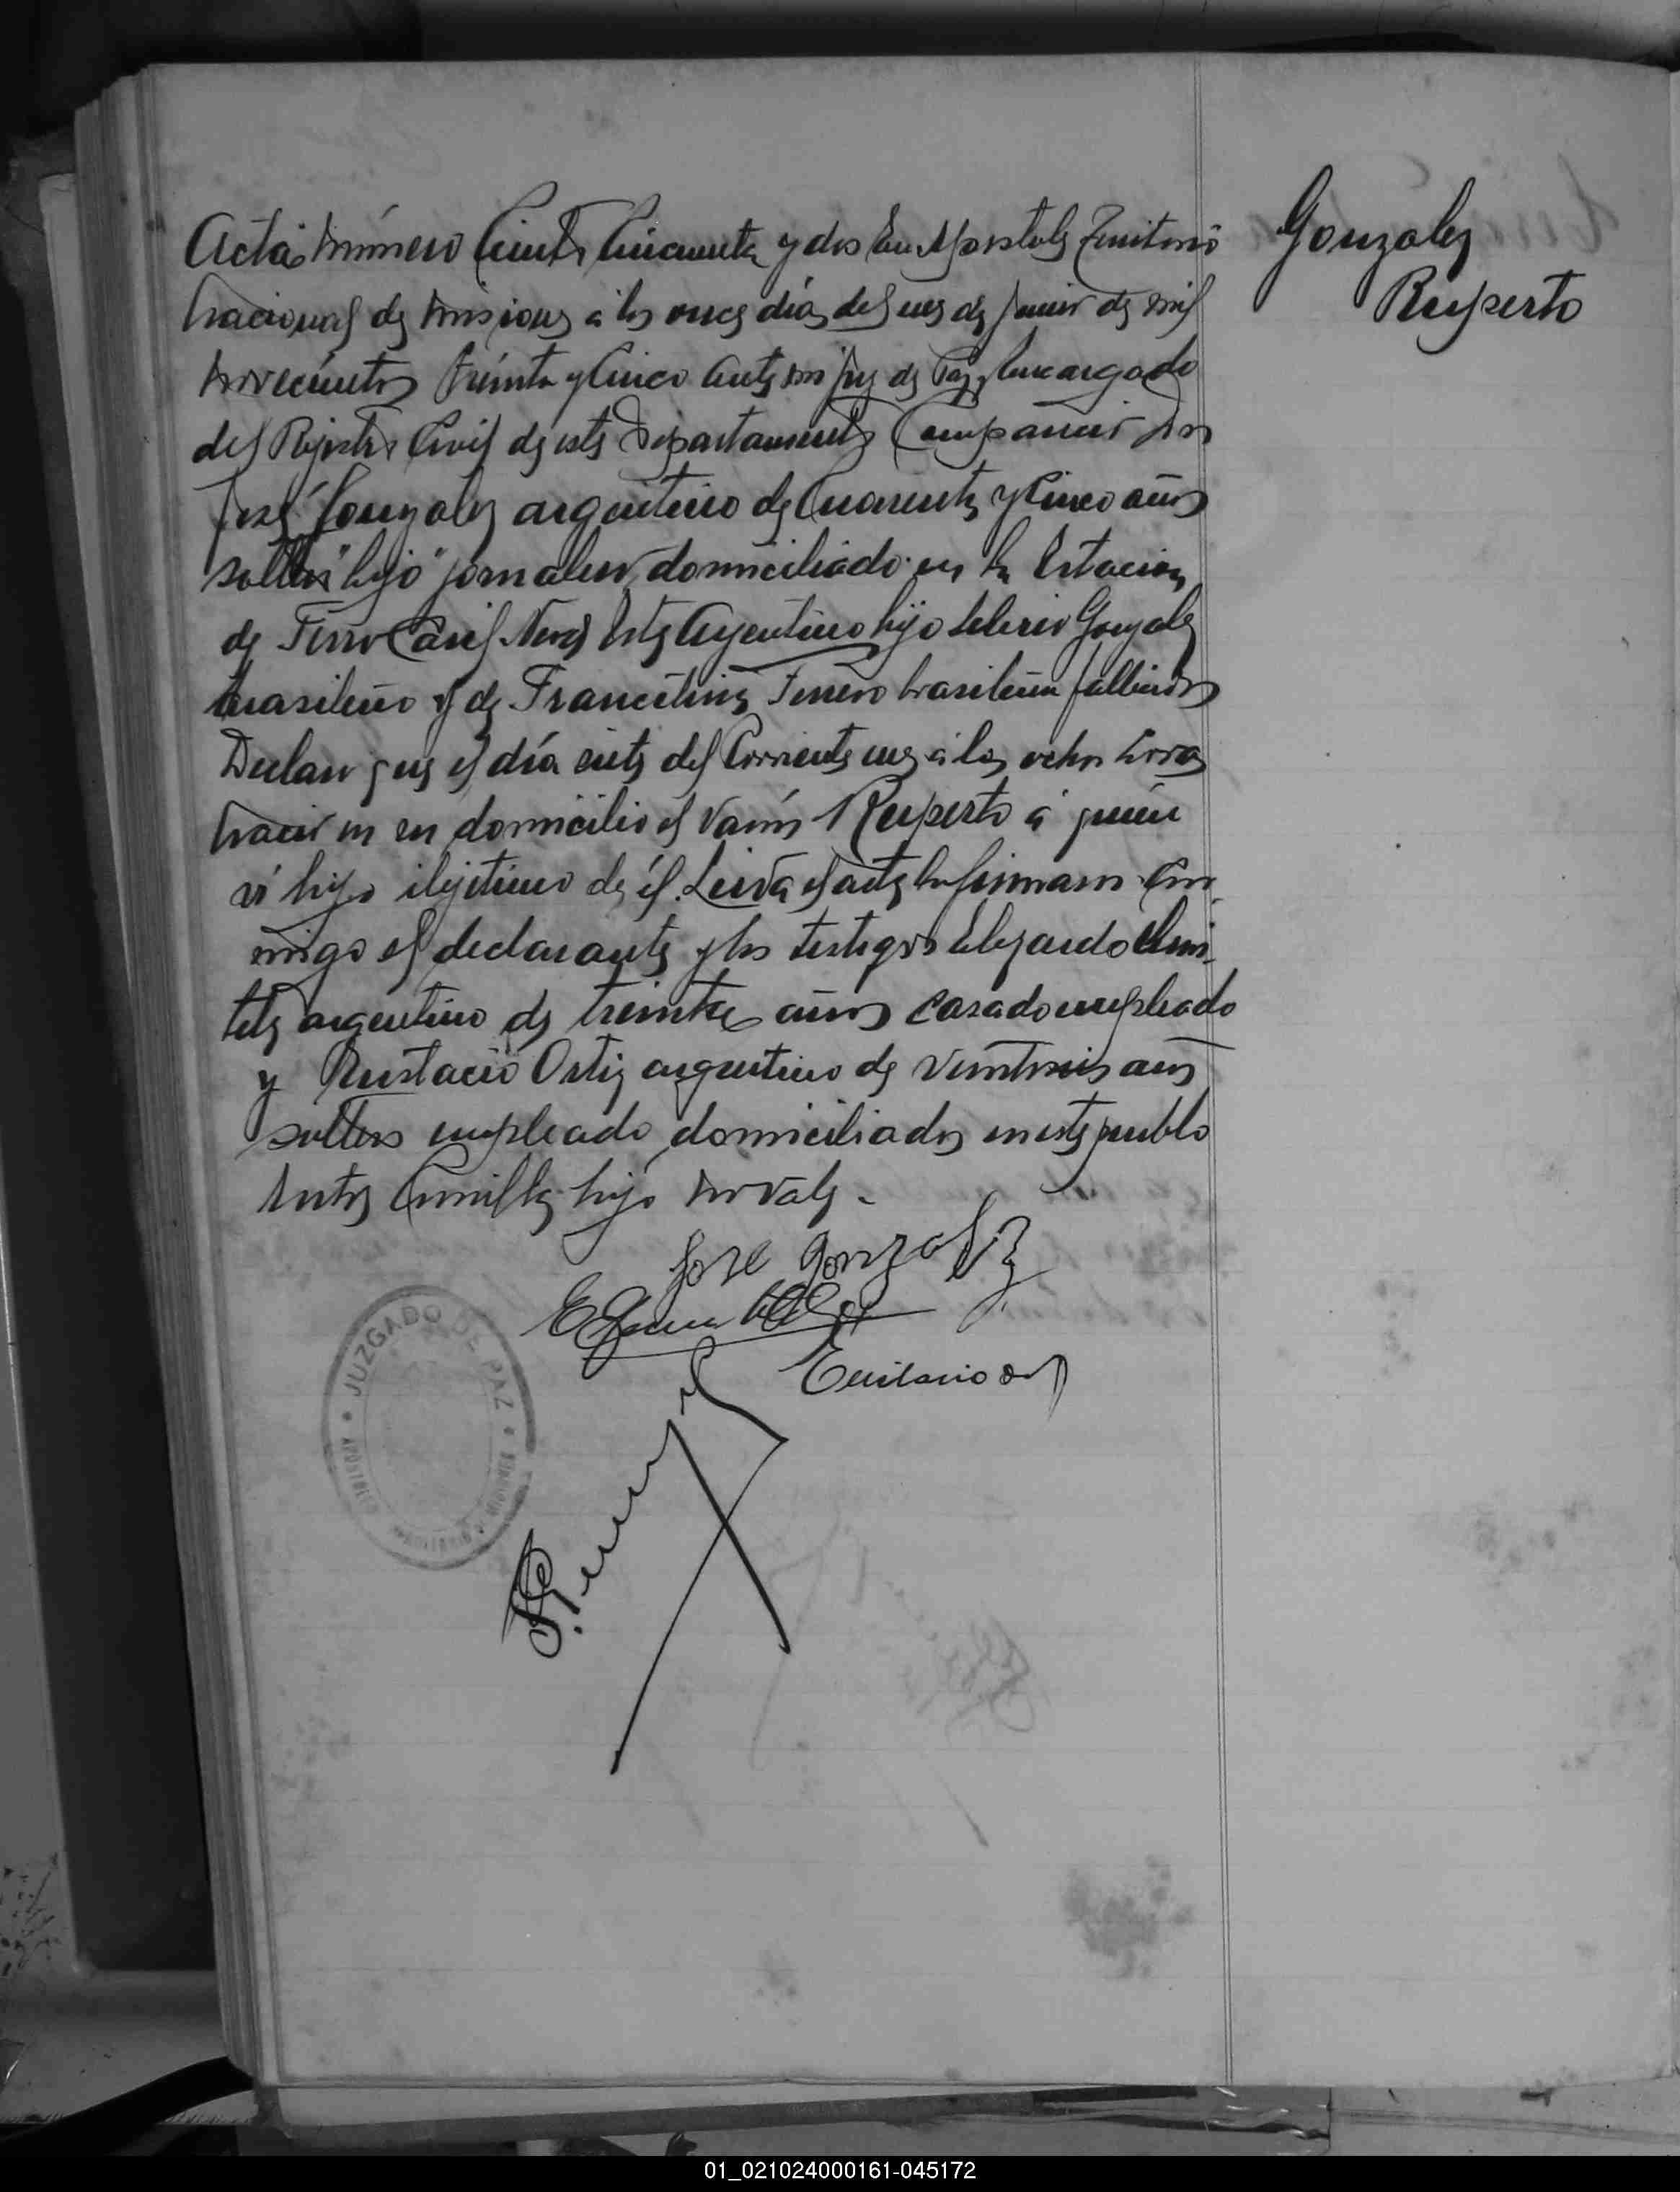 Gonzalez
Ruperto
Acta Número Ciento Cincuenta y dos En Apostoles Territorio
Nacional de Misiones a los once días del mes de Junio de mil
Novecientos treinta y Cinco ante mi Juez de Paz y Encargado
del Rejistro Civil de este Departamento Comparecio Don
José Gonzalez argentino de Cuarenta y Cinco años
soltero "hijo" jornalero, domiciliado en la Estacion
de Ferro Carril Nord Este Argentino hijo Gonzalez
brasilero y de Francelina brasilera fallecidos
Declaro que el día siete del Corriente mes á las ocho horas
nacio en su domicilio el varón Ruperto á quien
vi hijo ilejitimo de él. Leida el acta la firmaron con-
migo el declarante y los testigos
argentino de treinta años casado empleado
y Eustacio Ortiz argentino de años
soltero empleado, domiciliados en este pueblo
hijo No vale.
José Gonzalez
JUZGADO DE PAZ
APOSTOLES
01_021024000161-045172